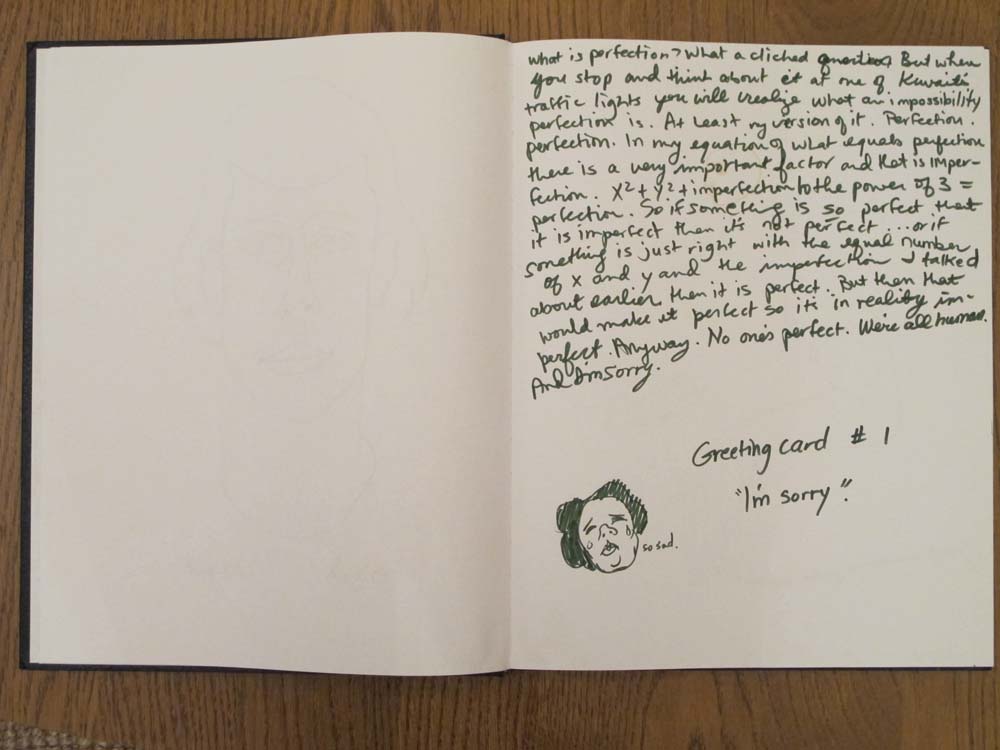 what is perfection? What a cliched question? But when
you stop and think about it at one of Kuwait's
traffic lights you will realize what an impossibility
perfection is. At Least my version of it. Perfection.
perfection. In my equation of what equals perfection
there is a very important factor and that is imper-
fection. X²+Y²+imperfection to the power of 3 =
perfection. So if something is so perfect that
it is imperfect then it's not perfect ... or if
something is just right with the equal number
of x and y and the imperfection I talked
about earlier then it is perfect. But then that
would make it perfect so it's in reality im-
perfect. Anyway. No one's perfect. We're all human.
And I'm sorry.
Greeting card # 1
"I'm sorry".
so sad.